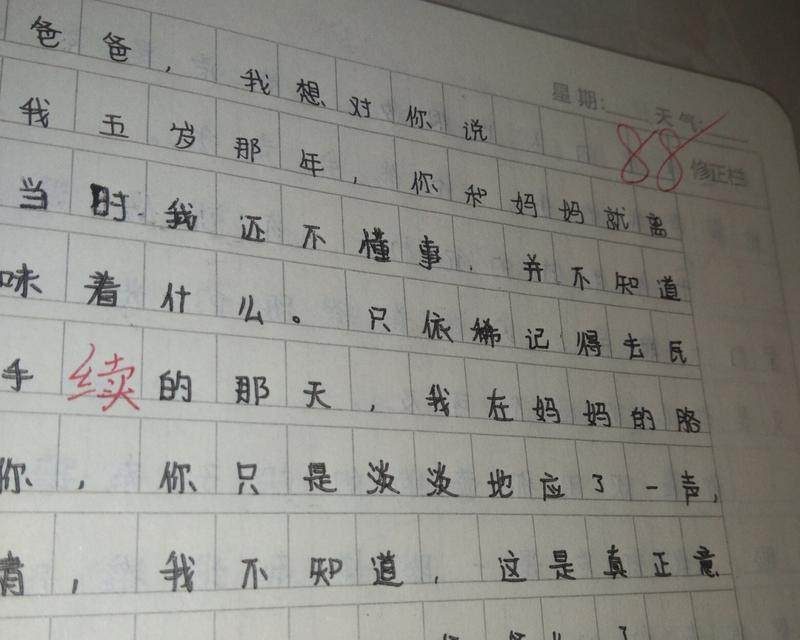 星期: 天气:
88 修正栏
爸爸，我想对你说
我五岁那年，你和妈妈就离
当时我还不懂事，并不知道
味着什么。只依稀记得去民
手续的那天，我在妈妈的胳
你，你只是淡淡地应了一声，
我不知道，这是真正意